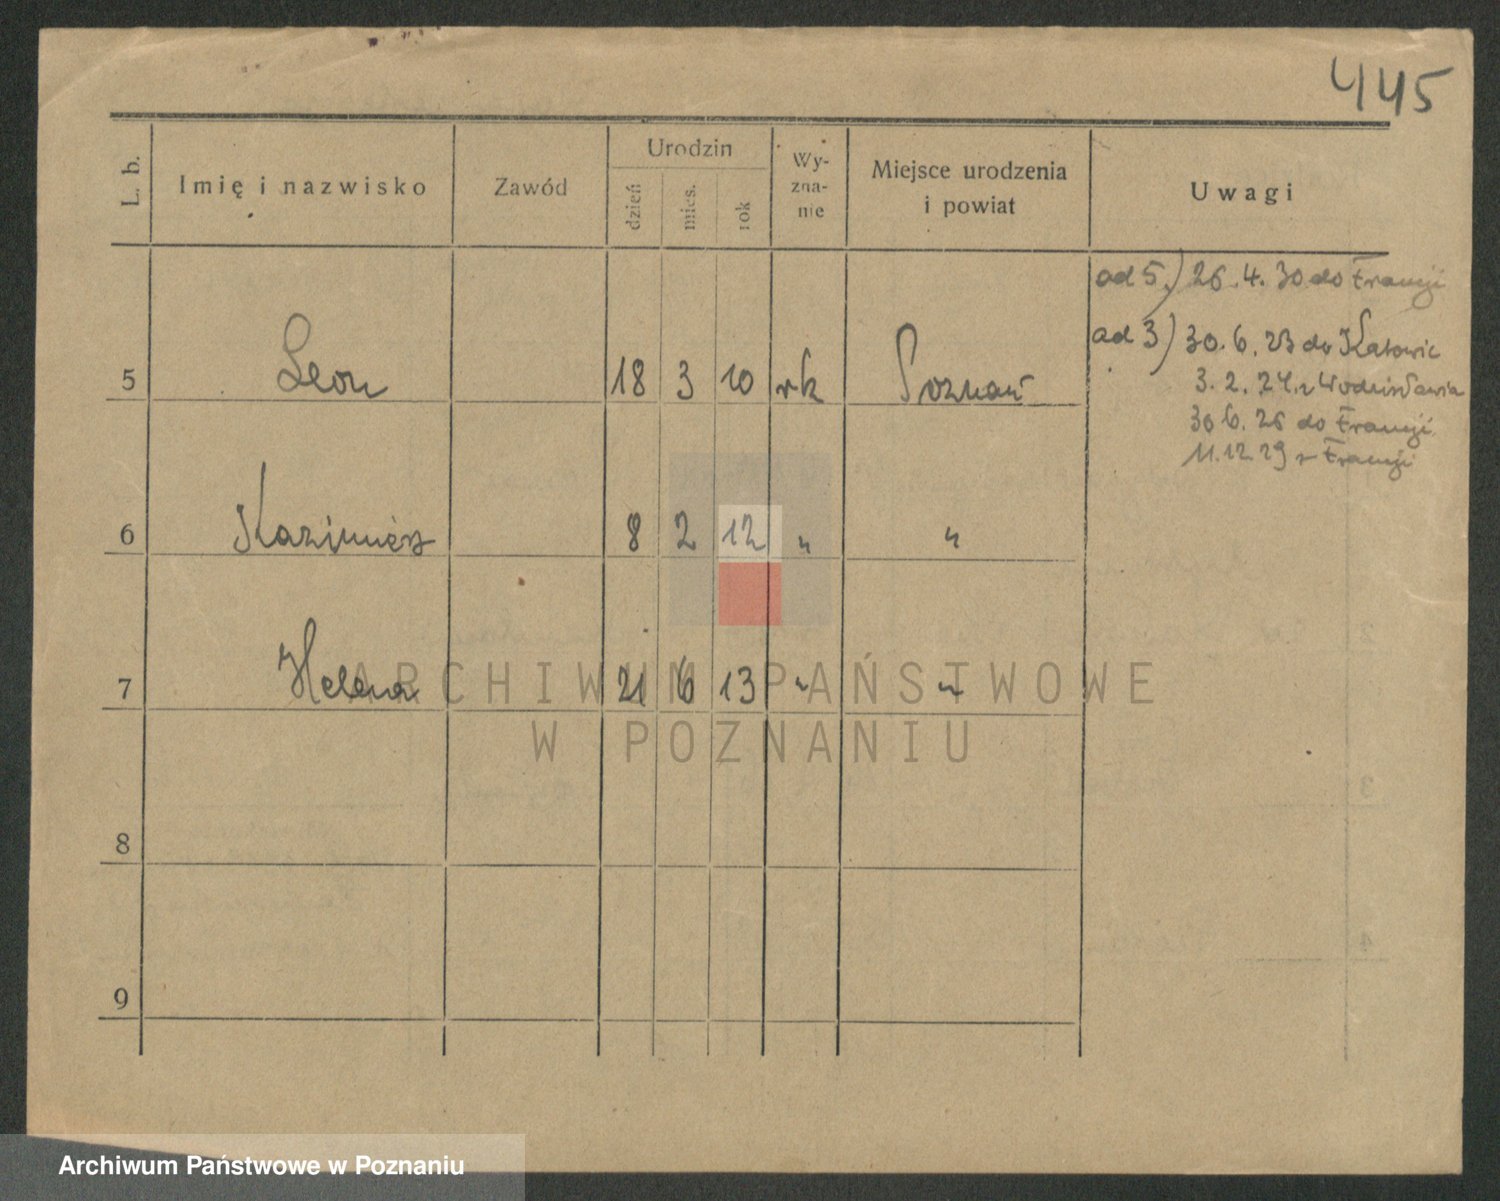 445
L. b.
Imię i nazwisko
Zawód
Urodzin
dzień
mies.
rok
Wy-
zna-
nie
Miejsce urodzenia
i powiat
Uwagi
ad 5.) 26.4.30 do Francji
ad 3) 30.6.23 do Katowic
3.2.24. z Wodzisławia
30 6.26 do Francji
11.12 29 z Francji
5 Leon 18 3 10 rk Poznań
6 Kazimierz 8 2 12 " "
7 Helena 21 6 13 " "
8
9
ARCHIWUM PAŃSTWOWE
W POZNANIU
Archiwum Państwowe w Poznaniu